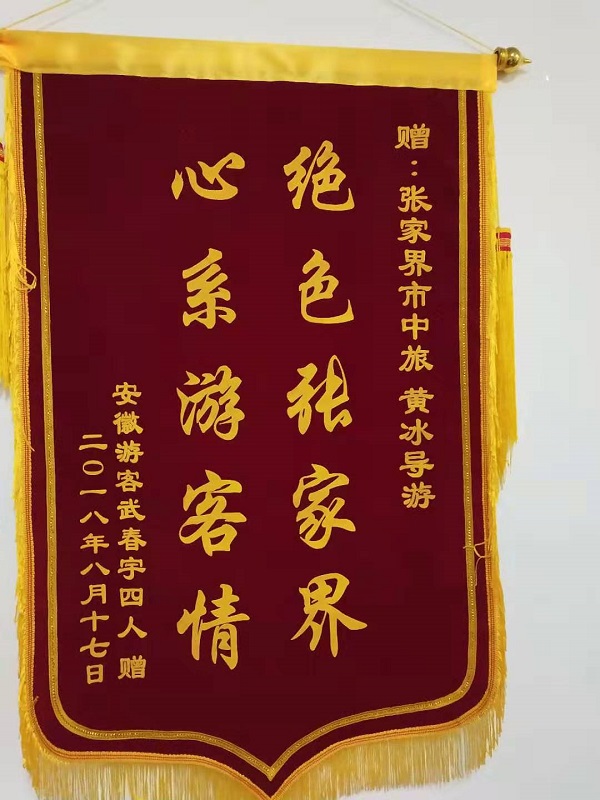 赠：张家界市中旅 黄冰导游
绝色张家界
心系游客情
安徽游客武春宇四人 赠
二〇一八年八月十七日